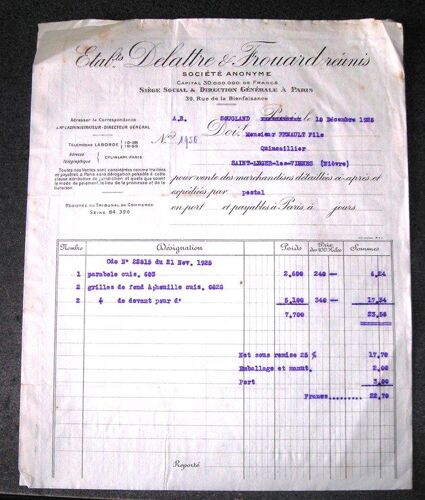 Etabts Delattre & Frouard réunis
SOCIÉTÉ ANONYME
CAPITAL 30.000.000 DE FRANCS
SIÈGE SOCIAL & DIRECTION GÉNÉRALE À PARIS
39, Rue de la Bienfaisance
Adresser la Correspondance
A Mr L'ADMINISTRATEUR-DIRECTEUR GÉNÉRAL
TÉLÉPHONE LABORDE
Adresse télégraphique
Toutes nos Ventes sont considérées comme traitées
et payables à Paris sans dérogation possible à cette
clause attributive de juridiction et quels que soient
le mode de paiement, le lieu de la promesse et de la
livraison.
REGISTRE DU TRIBUNAL DE COMMERCE
SEINE 84.326
A.R. SOUGLAND le 18 Décembre 1925
Doit
Monsieur PERAULT Fils
Quincaillier
SAINT-LEGER-les-VIGNES (Nièvre)
pour vente des marchandises détaillées ci-après et
expédiées par postal
en port et payables à Paris à jours.
Nombre Désignation Poids Prix des 100 Kilos Sommes
Cde N° 22815 du 21 Nov. 1925
1 parabole cuis. 603 2,600 240 — 6,24
2 grilles de fond cuis. 0620
2 de devant pour d° 5,100 340 — 17,34
7,700 23,58
Net sous remise 25 % 17,70
Emballage et manut. 2,00
Port 3,00
Francs......... 22,70
Reporté